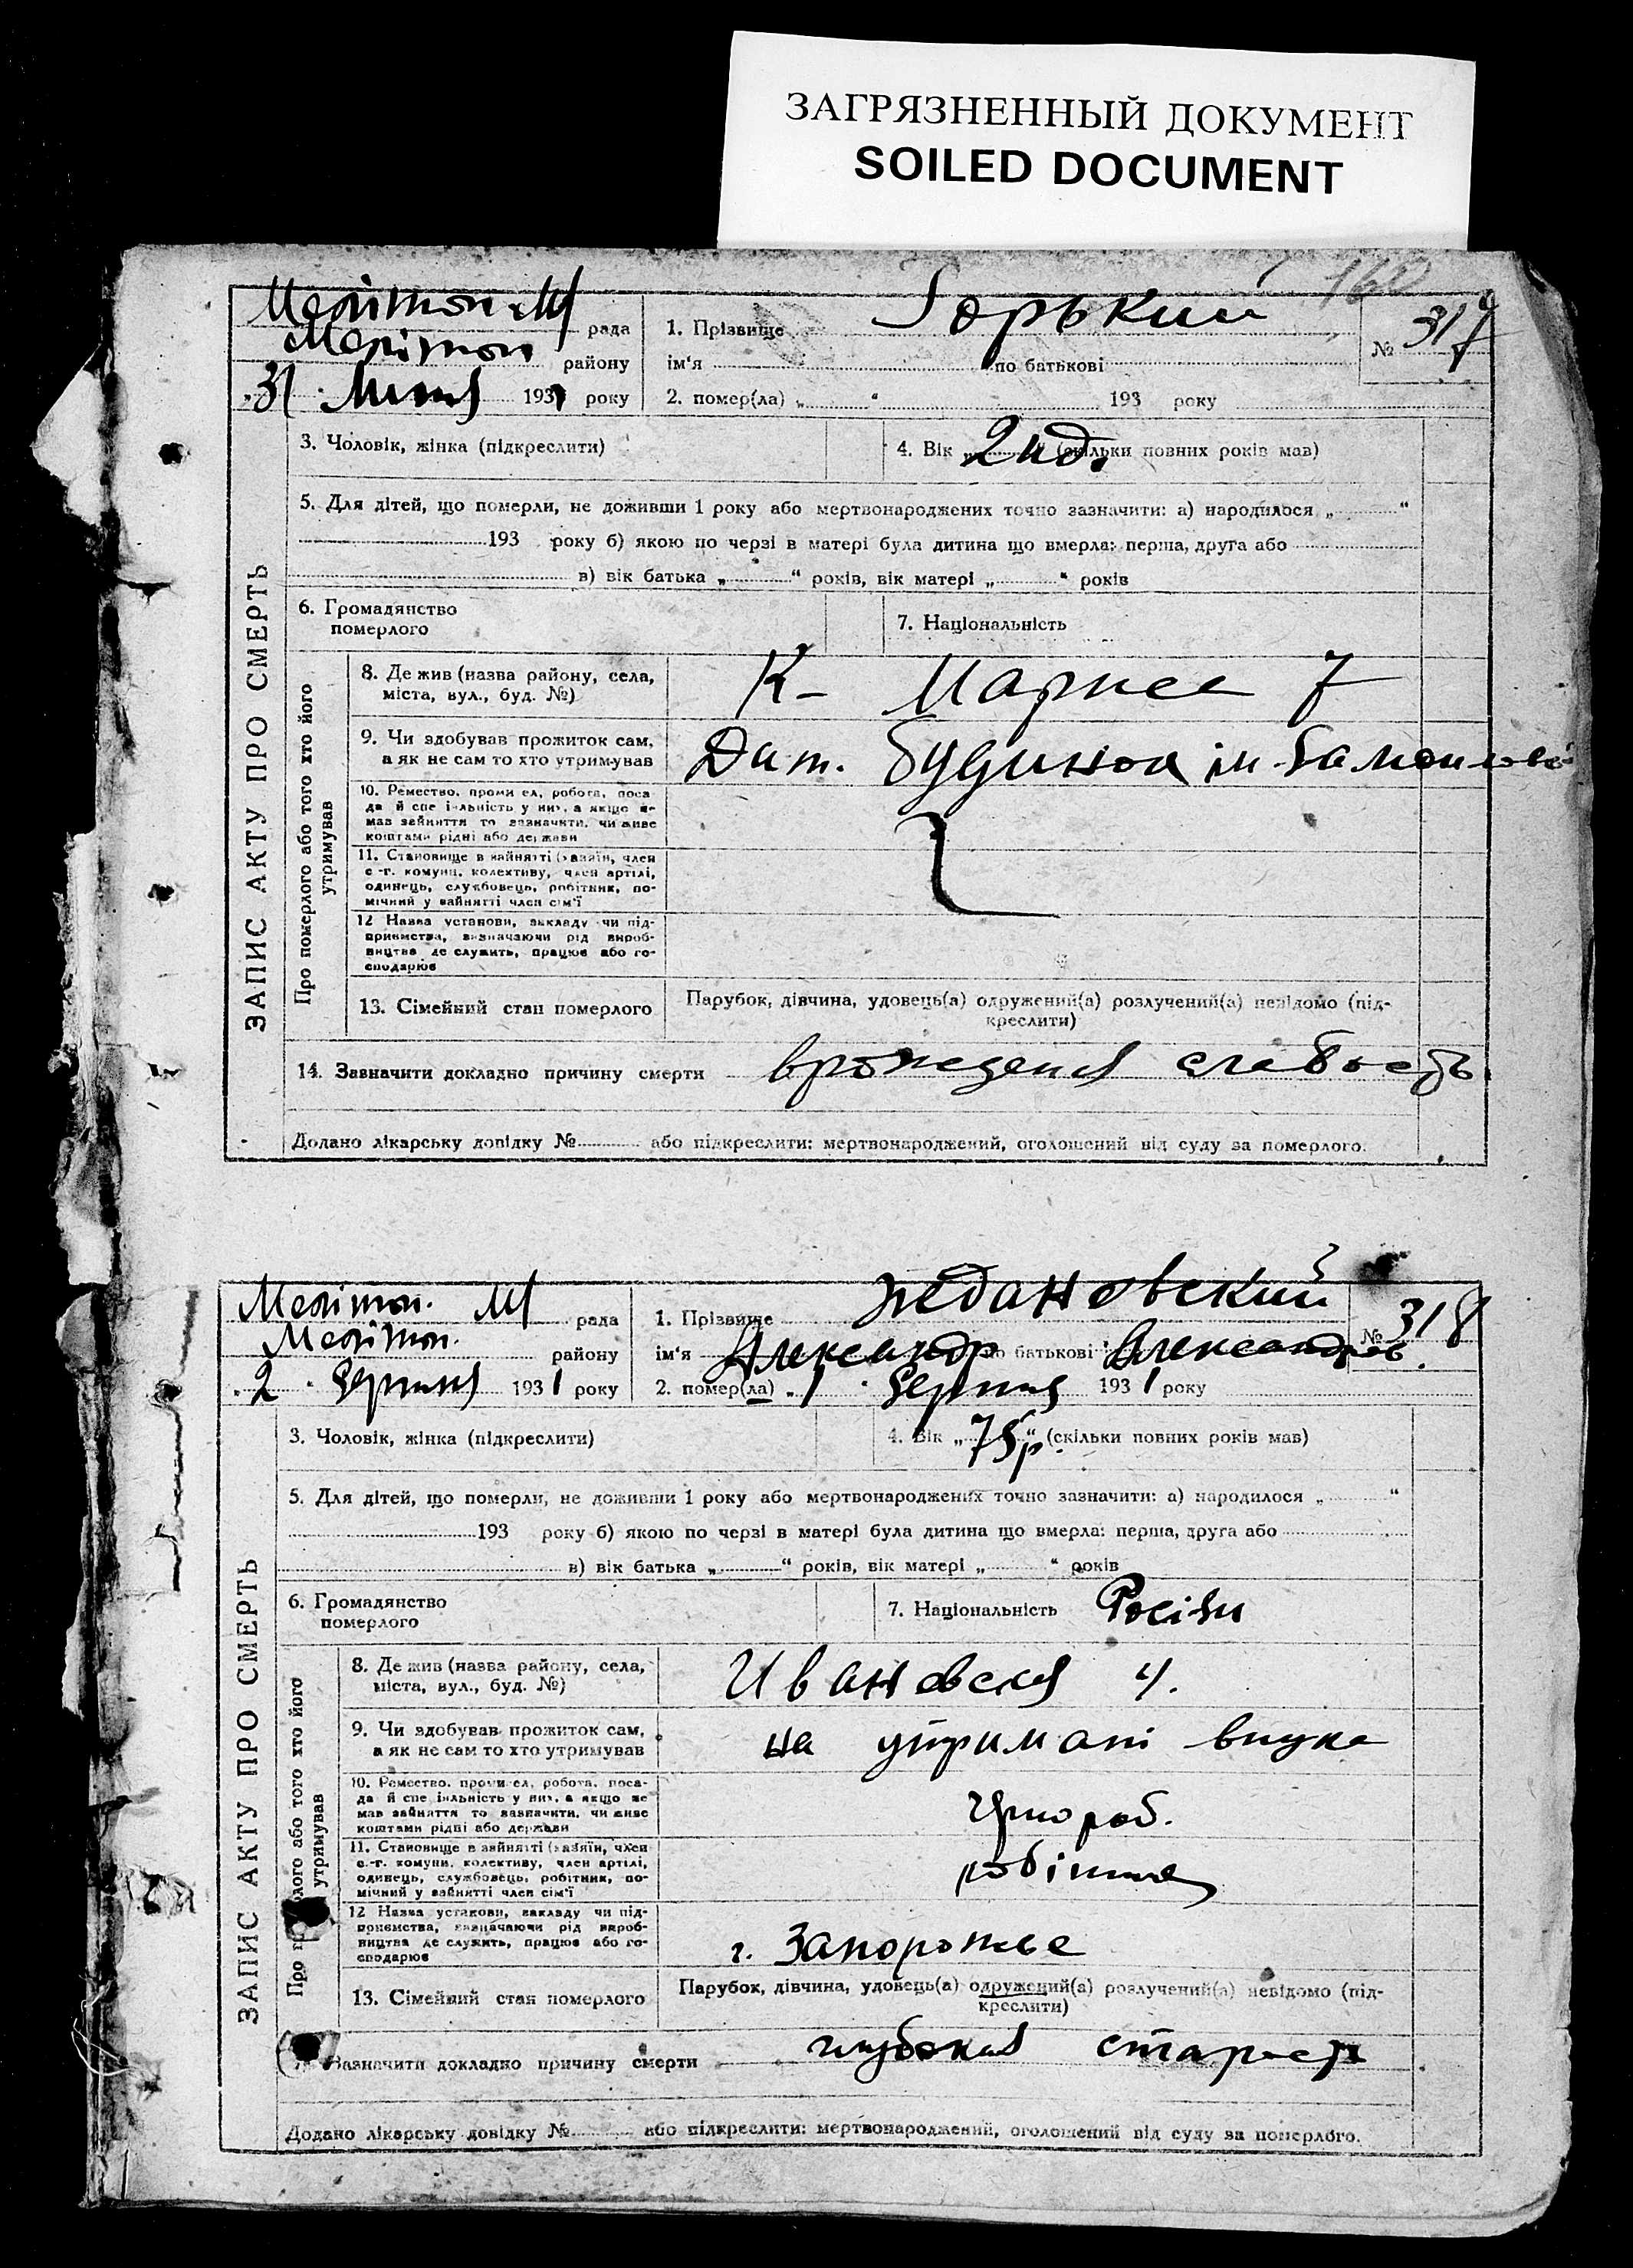 ЗАГРЯЗНЕННЫЙ ДОКУМЕНТ
SOILED DOCUMENT
160
Меліт рада
Меліт району
31 193 року
1. Прізвище Горький
ім‘я по батькові
№ 317
2. помер(ла) „ “ 193 року
3. Чоловік, жінка (підкреслити)
4. Вік „ “ (скільки повних років мав)
5. Для дітей, що померли, не доживши 1 року або мертвонароджених точно зазначити: а) народилося „ “
193 року б) якою по черзі в матері була дитина що вмерла: перша, друга або
в) вік батька „ “ років, вік матері „ “ років
6. Громадянство
померлого
7. Національність
ЗАПИС АКТУ ПРО СМЕРТЬ
Про померлого або того хто його
утримував
8. Де жив (назва району, села,
міста, вул., буд. №)
К- Маркса 7
9. Чи здобував прожиток сам,
а як не сам то хто утримував
Дит. будинок ім.
10. Ремество, промисел, робота, поса-
да й спеціальність у них, а якщо не
мав зайняття то зазначити, чи живе
коштами рідні або держави
11. Становище в зайнятті (хазяїн, член
с.-г. комуни, колективу, член артілі,
одинець, службовець, робітник, по-
мічний у зайнятті член сім‘ї
12 Назва установи, закладу чи під-
приємства, визначаючи рід вироб-
ництва де служить, працює або го-
сподарює
13. Сімейний стан померлого
Парубок, дівчина, удовець(а) одружений(а) розлучений(а) невідомо (під-
креслити)
14. Зазначити докладно причину смерти слабость
Додано лікарську довідку № або підкреслити: мертвонароджений, оголошений від суду за померлого.
Меліт рада
Меліт. району
2 Серпня 1931 року
1. Прізвище Ждановский
ім‘я Александр по батькові Александров.
№ 318
2. помер(ла) „ 1 “ Серпня 1931 року
3. Чоловік, жінка (підкреслити)
4. Вік „ 75р. “ (скільки повних років мав)
5. Для дітей, що померли, не доживши 1 року або мертвонароджених точно зазначити: а) народилося „ “
193 року б) якою по черзі в матері була дитина що вмерла: перша, друга або
в) вік батька „ “ років, вік матері „ “ років
6. Громадянство
померлого
7. Національність
ЗАПИС АКТУ ПРО СМЕРТЬ
Про лого або того хто його
утримував
8. Де жив (назва району, села,
міста, вул., буд. №)
Ивановская 4.
9. Чи здобував прожиток сам,
а як не сам то хто утримував
на утримані внука
10. Ремество, промисел, робота, поса-
да й спеціальність у них, а якщо не
мав зайняття то зазначити, чи живе
коштами рідні або держави
Чоророб.
11. Становище в зайнятті (хазяїн, член
с.-г. комуни, колективу, член артілі,
одинець, службовець, робітник, по-
мічний у зайнятті член сім‘ї
робітник
12 Назва установи, закладу чи під-
приємства, визначаючи рід вироб-
ництва де служить, працює або го-
сподарює
г. Запорожье
13. Сімейний стан померлого
Парубок, дівчина, удовець(а) одружений(а) розлучений(а) невідомо (під-
креслити)
Зазначити докладно причину смерти глубокая старость
Додано лікарську довідку № або підкреслити: мертвонароджений, оголошений від суду за померлого.